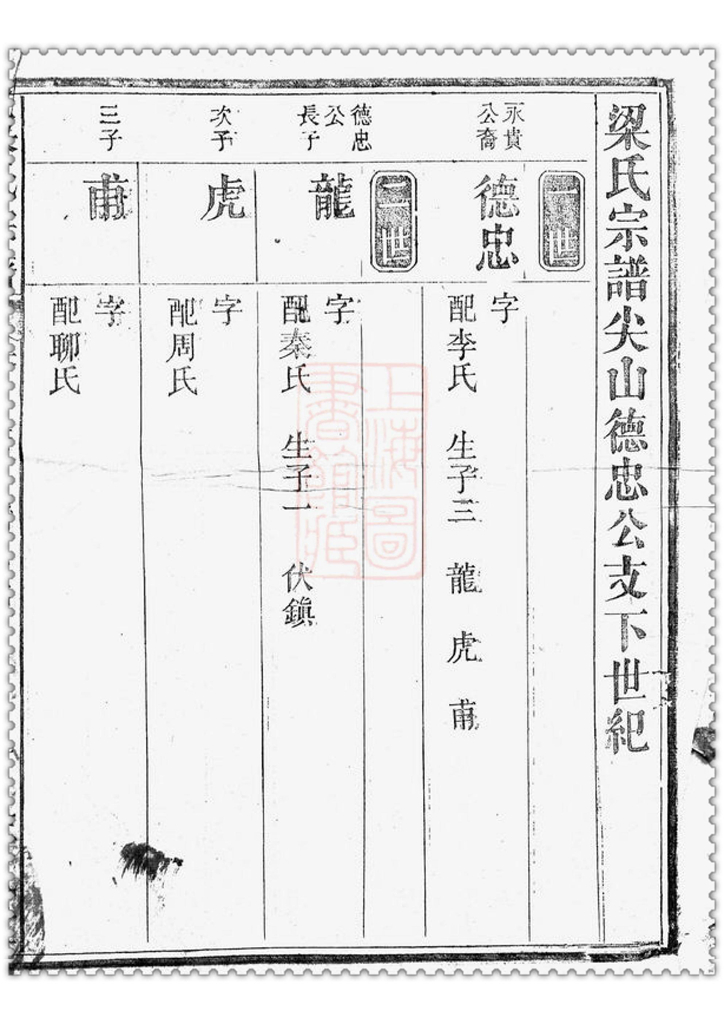 梁氏宗譜尖山德忠公支下世紀
一世
永貴
公裔
德忠
字
配李氏 生子三 龍 虎 甫
二世
德忠
公
長子
龍
字
配秦氏 生子一 伏鎮
次子
虎
字
配周氏
三子
甫
字
配聊氏
上海圖
書館藏